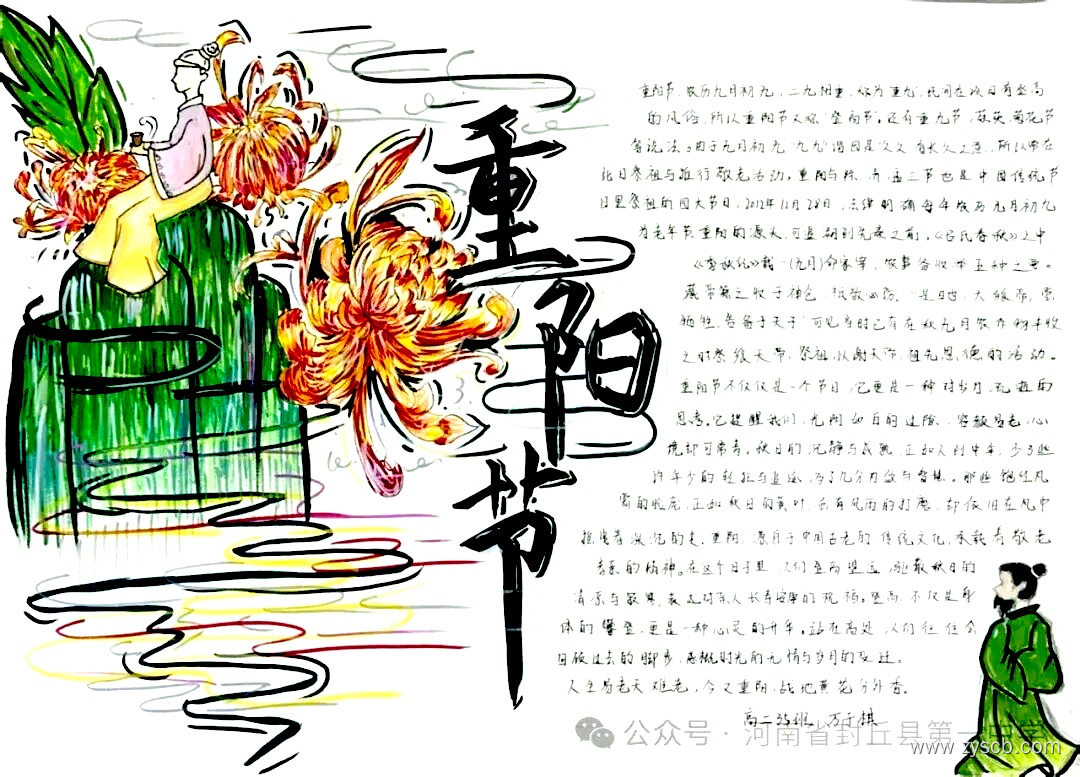 重阳节
重阳节,农历九月初九,二九阳重,称为"重九",民间在该日有登高
的风俗,所以重阳节又称"登高节"。还有重九节、茱萸、菊花节
等说法。由于九月初九"九九"谐音是"久久"有长久之意,所以常在
此日祭祖与推行敬老活动。重阳与除、清、盂三节也是中国传统节
日里祭祖的四大节日。2012年12月28日,法律明确每年农历九月初九
为老年节重阳的源头,可追溯到先秦之前。《吕氏春秋》之中
《季秋纪》载:(九月)命家宰,农事备收,举五种之要。
藏帝籍之收于神仓,祗敬必饬。是日也,大飨帝,尝
牺牲,告备于天子"可见当时已有在秋九月农作物丰收
之时祭飨天帝、祭祖,以谢天帝、祖先恩德的活动。
重阳节不仅仅是一个节日,它更是一种对岁月、礼
思考。它提醒我们,光阴如白的过隙,容颜易老,心
境却可常青。秋日的沉静与成熟,正如人到中年,少了些
许年少的轻狂与,多了几分内敛与智慧。那些饱经风
霜的脸庞,正如秋日的黄叶,虽有风雨的打磨,却依旧在风中
着深沉的美。重阳,源自于中国古老的传统文化,承载着敬老
的精神。在这个日子里,人们登高望远,秋日的
清凉与寂寞,表达对亲人长寿安康的祝福。登高,不仅是身
体的攀登,更是一种心灵的升华。站在高处,人们往往会
回顾过去的脚步,感慨时光的无情与岁月的变迁。
人生易老天难老,今又重阳,战地黄花分外香。
高二35班 万子棋
公众号·河南省封丘县第一中学
www.zyscb.com